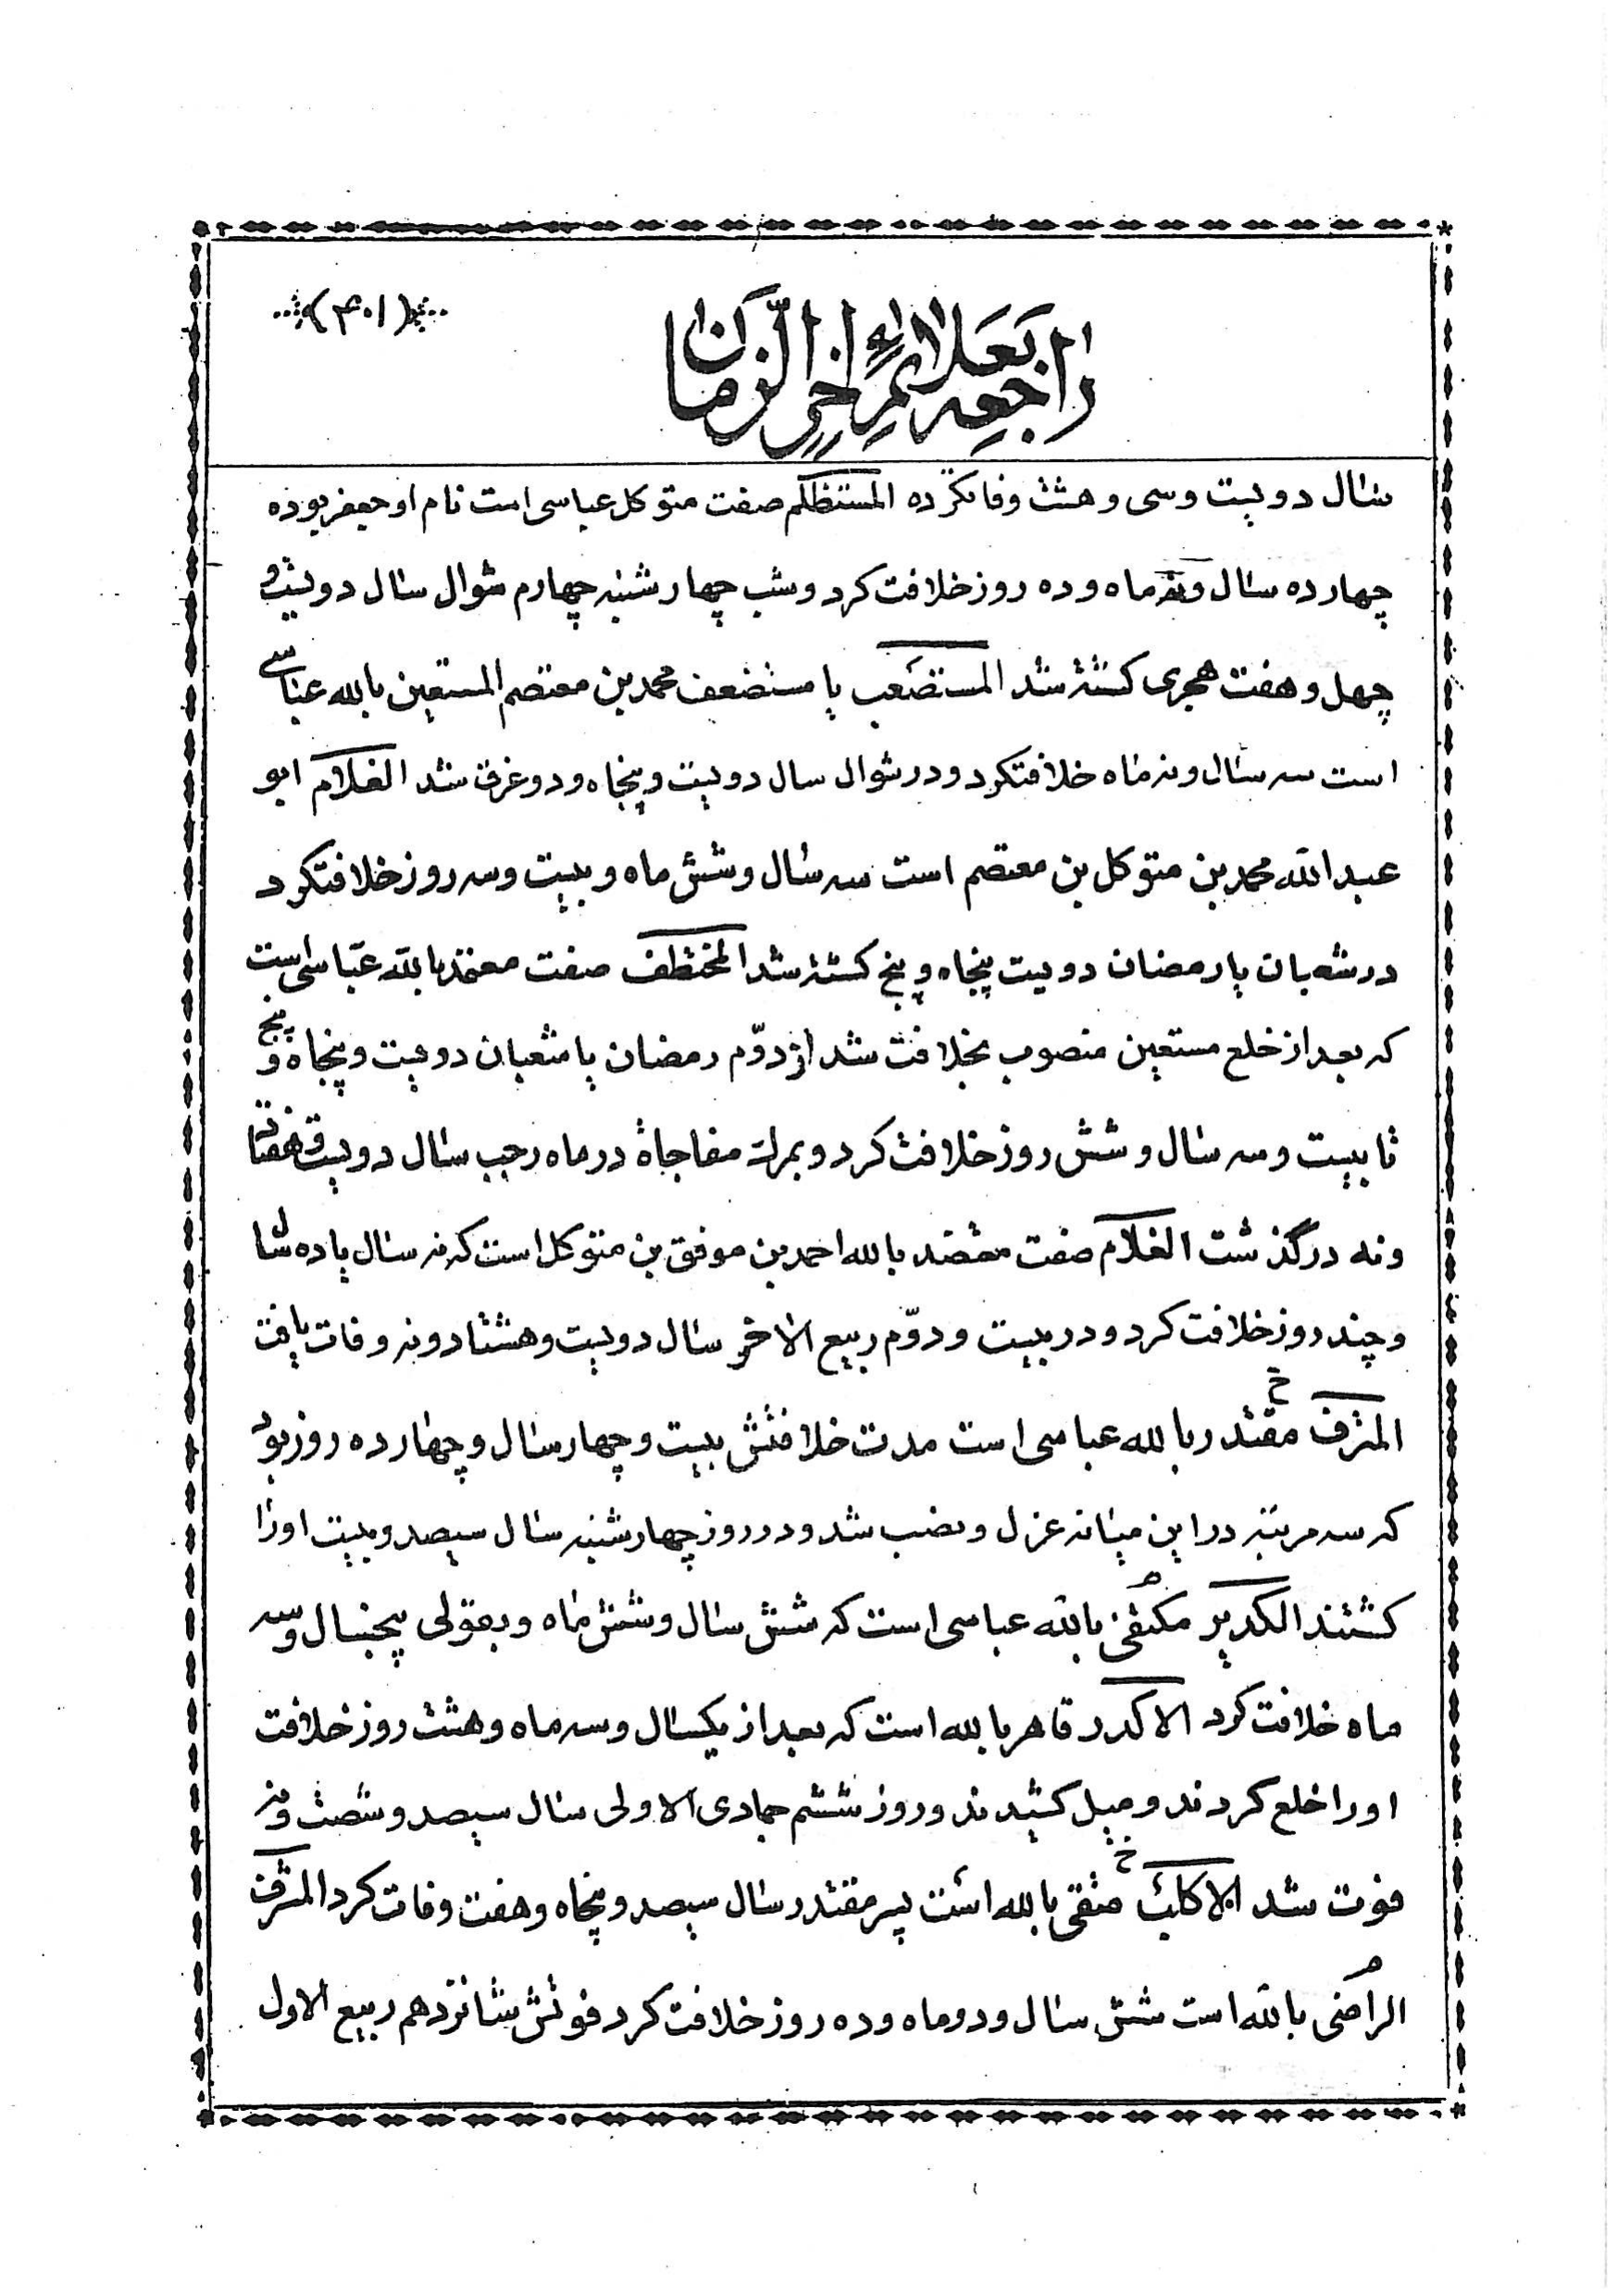 (۴۰۱)
راجعه بعلائم اخر الزمان
سال دویست وسی و هشت وفا تکرده المستظلم صفت متوکل عباسی است نام او جعفر بوده
چهارده سال ونه ماه و ده روز خلافت کرد و شب چهار شنبه چهارم شوال سال دویست و
چهل و هفت هجری کشته شد المستضعب یا مستضعف محمد بن معتصم المستعین بالله عباسی
است سه سال و نه ماه خلافتکرد و در شوال سال دویست و پنجاه و دو غرق شد الغلام ابو
عبد الله محمد بن متوکل بن معتصم است سه سال و شش ماه و بیست وسه روز خلافتکرد
در شعبان یا رمضان دویست پنجاه و پنج کشته شد المختطف صفت معتمد بالله عباسی است
که بعد از خلع مستعین منصوب بخلافت شد از دوّم رمضان یا شعبان دویست و پنجاه و پنج
تا بیست و سه سال و شش روز خلافت کرد و بمرك مفاجاة در ماه رجب سال دویست و هفتاد
ونه درگذشت الغلام صفت معتضد بالله احمد بن موفق بن متوکل است که نه سال یا ده سال
و چند روز خلافت کرد و در بیست و دوّم ربیع الاخر سال دویست و هشتاد و نه وفات یافت
المترف خ مقتدر بالله عباسی است مدت خلافتش بیست و چهار سال و چهارده روز بود
که سه مرتبه در این میانه عزل و نصب شد و در روز چهار شنبه سال سیصد و بیست او را
کشتند الکدیر مکتفی بالله عباسی است که شش سال و شش ماه و بقولی پنجسال و سه
ماه خلافت کرد الاکدر قاهر بالله است که بعد از یکسال و سه ماه و هشت روز خلافت
او را خلع کردند و میل کشیدند و روز ششم جمادی الاولی سال سیصد و شصت و نه
فوت شد الاکلب خ متقی بالله است پسر مقتدر سال سیصد و پنجاه و هفت وفات کرد المترف
الراضی بالله است شش سال و دو ماه و ده روز خلافت کرد فوتش شانزدهم ربیع الاول